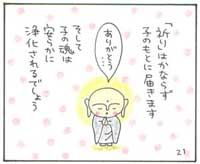 「祈り」はかならず
子のもとに届きます
ありがとう…
そして
子の魂は
安らかに
浄化されるでしょう
21